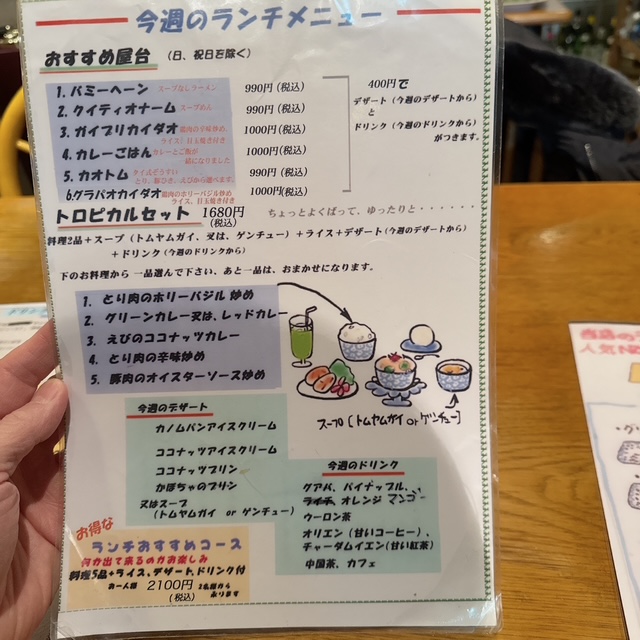 今週のランチメニュー
おすすめ屋台 (日、祝日を除く)
1. バミーヘーン スープなしラーメン 990円(税込)
2. クイティオナーム スープめん 990円(税込)
3. ガイプリカイダオ 鶏肉の辛味炒め、ライス、目玉焼き付き 1000円(税込)
4. カレーごはん カレーとご飯が一緒になりました 1000円(税込)
5. カオトム タイ式ぞうすい とり、豚ひき、えびから選べます。 990円(税込)
6.グラパオカイダオ 鶏肉のホーリーバジル炒め ライス、目玉焼き付き 1000円(税込)
400円で
デザート(今週のデザートから)
と
ドリンク(今週のドリンクから)
がつきます。
トロピカルセット 1680円(税込) ちょっとよくばって、ゆったりと・・・・・・
料理2品+スープ(トムヤムガイ、又は、ゲンチュー)+ライス+デザート(今週のデザートから)
+ドリンク(今週のドリンクから)
下のお料理から 一品選んで下さい、あと一品は、おまかせになります。
1. とり肉のホリーバジル 炒め
2. グリーンカレー又は、レッドカレー
3. えびのココナッツカレー
4. とり肉の辛味炒め
5. 豚肉のオイスターソース炒め
スープ[トムヤムガイ or ゲンチュー]
今週のデザート
カノムパンアイスクリーム
ココナッツアイスクリーム
ココナッツプリン
かぼちゃのプリン
又はスープ
(トムヤムガイ or ゲンチュー)
今週のドリンク
グアバ、パイナップル、
ライチ、オレンジ マンゴー
ウーロン茶
オリエン(甘いコーヒー)、
チャーダムイエン(甘い紅茶)
中国茶、カフェ
お得な
ランチおすすめコース
何が出て来るのかお楽しみ
料理5品+ライス、デザート、ドリンク付
お一人様 2100円(税込) 2名様から承ります
人気